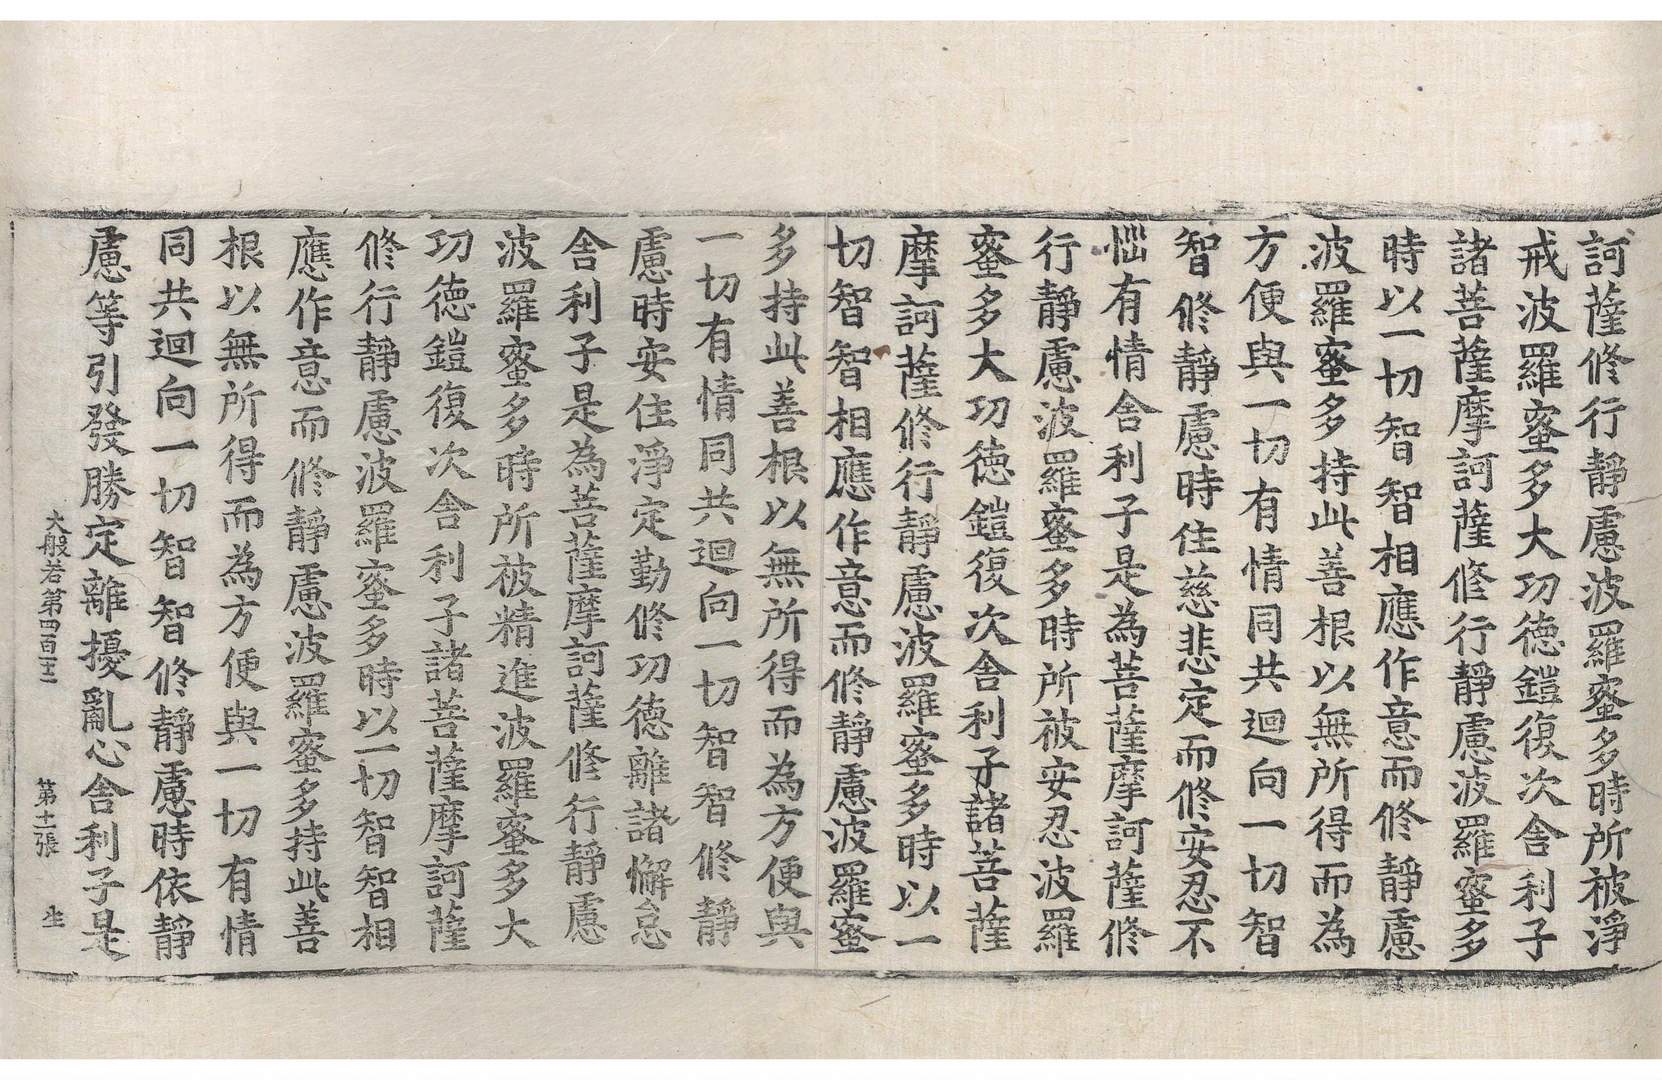 訶薩修行靜慮波羅蜜多時所被淨
戒波羅蜜多大功德鎧復次舍利子
諸菩薩摩訶薩修行靜慮波羅蜜多
時以一切智智相應作意而修靜慮
波羅蜜多持此善根以無所得而為
方便與一切有情同共迴向一切智
智修靜慮時住慈悲定而修安忍不
惱有情舍利子是為菩薩摩訶薩修
行靜慮波羅蜜多時所被安忍波羅
蜜多大功德鎧復次舍利子諸菩薩
摩訶薩修行靜慮波羅蜜多時以一
切智智相應作意而修靜慮波羅蜜
多持此善根以無所得而為方便與
一切有情同共迴向一切智智修靜
慮時安住淨定勤修功德離諸懈怠
舍利子是為菩薩摩訶薩修行靜慮
波羅蜜多時所被精進波羅蜜多大
功德鎧復次舍利子諸菩薩摩訶薩
修行靜慮波羅蜜多時以一切智智相
應作意而修靜慮波羅蜜多持此善
根以無所得而為方便與一切有情
同共迴向一切智智修靜慮時依靜
慮等引發勝定離擾亂心舍利子是
大般若第四百十二 第十一張 生